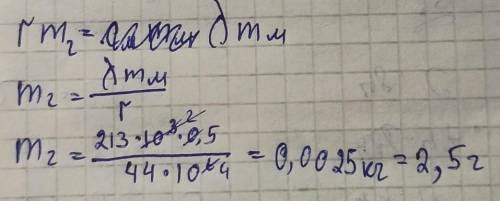 r m₂ = λ m м
m₂ = λ m м / r
m₂ = 213·10³²·0,5 / 44·10⁶4 = 0,0025кг = 2,5г